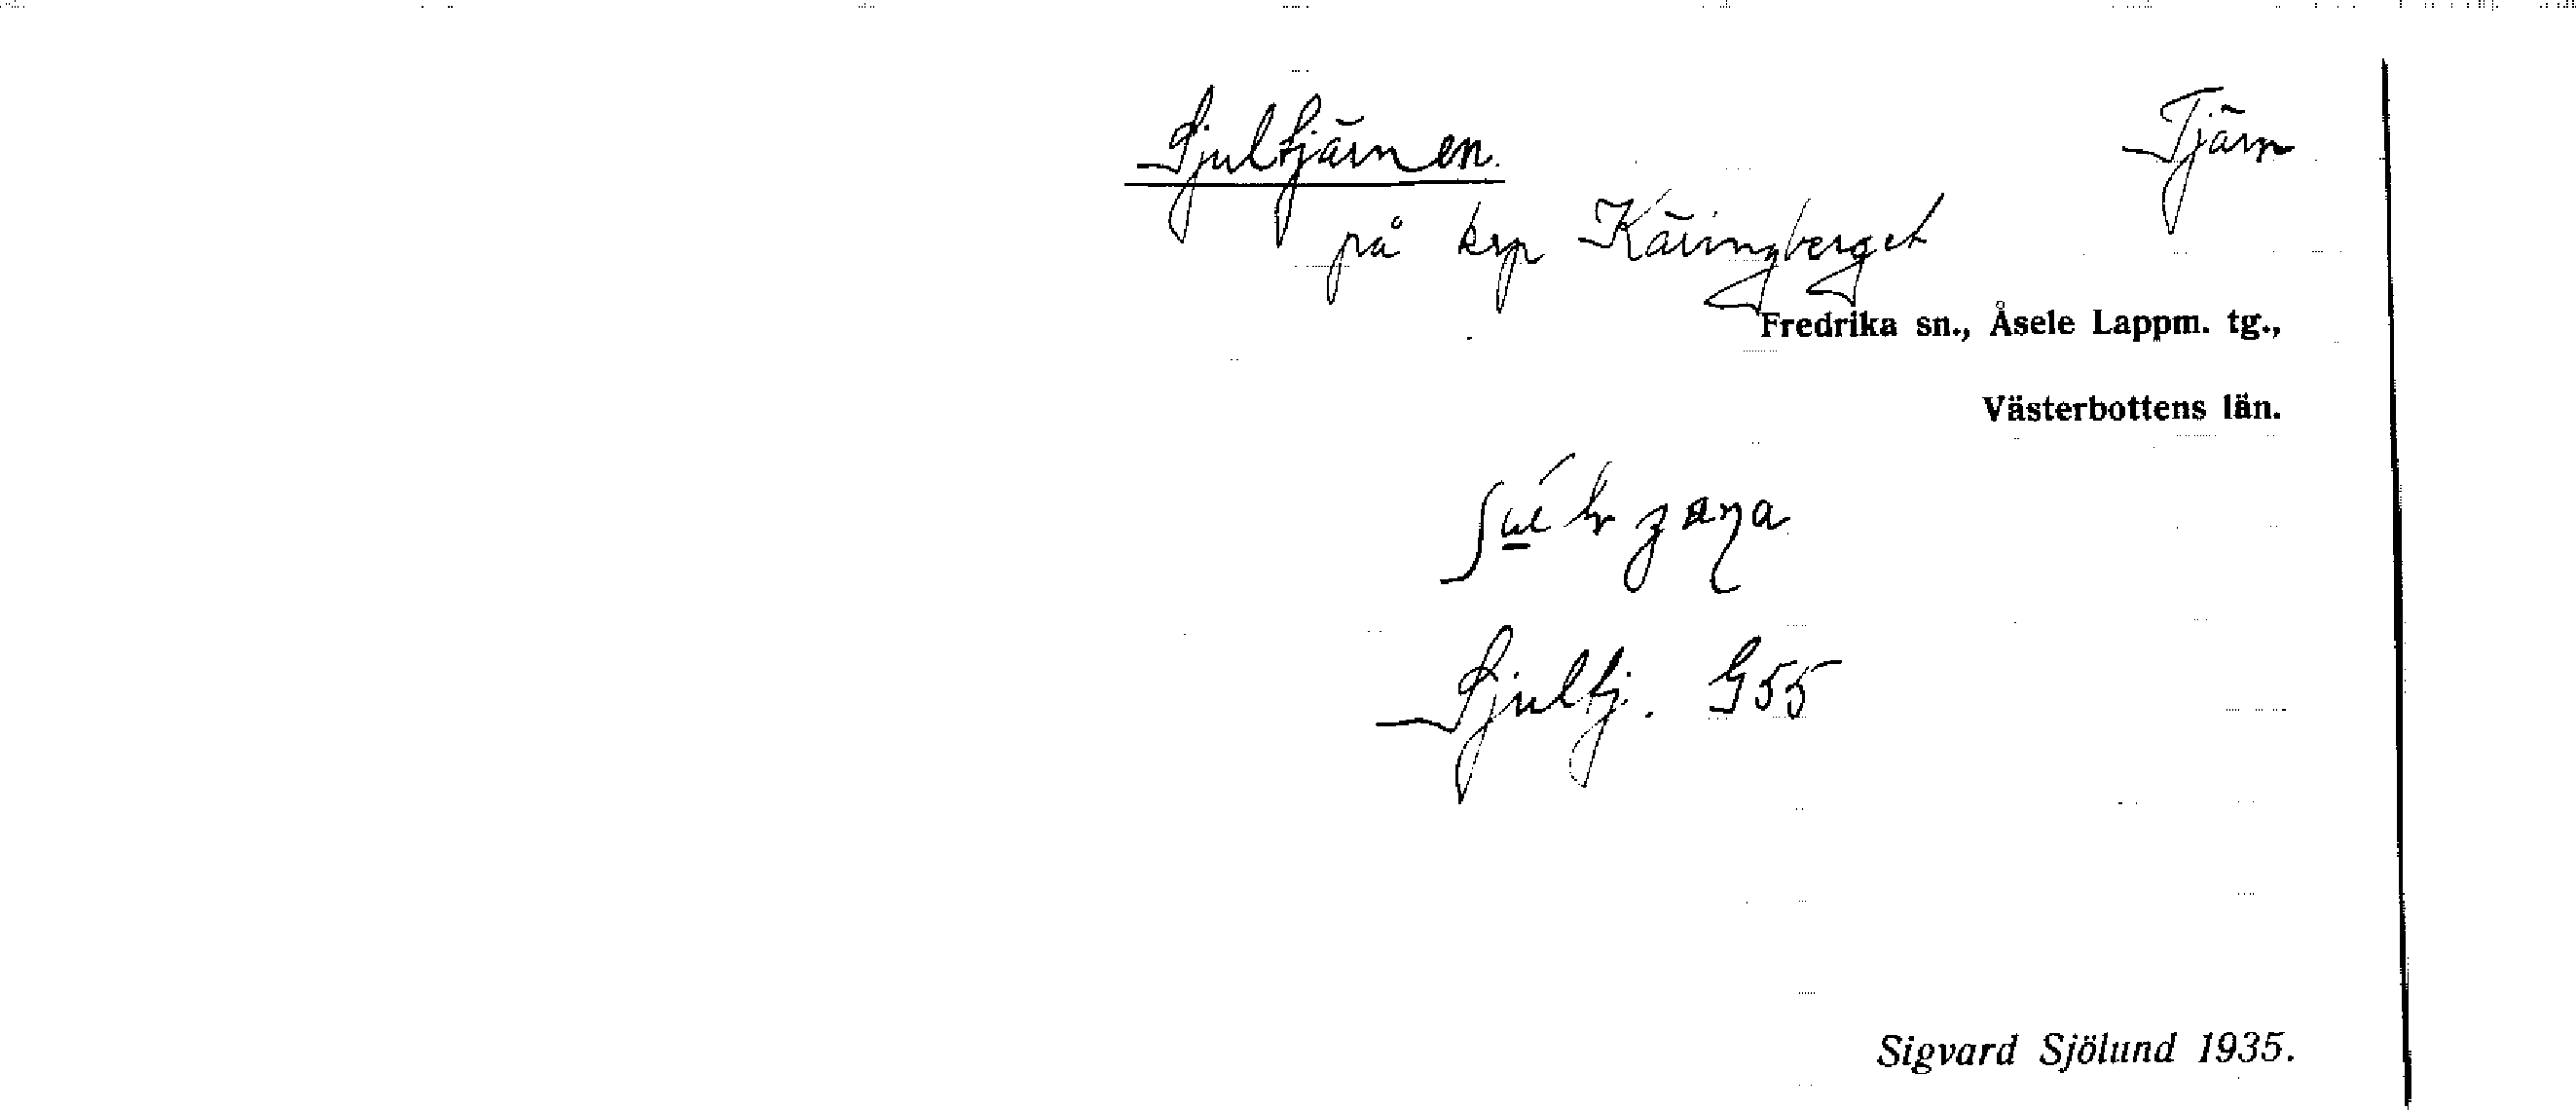 Sjultjärnen. Tjärn
på krp Käringberget
Fredrika sn., Åsele Lappm. tg.,
Västerbottens län.
Sjultj. G55
Sigvard Sjölund 1935.